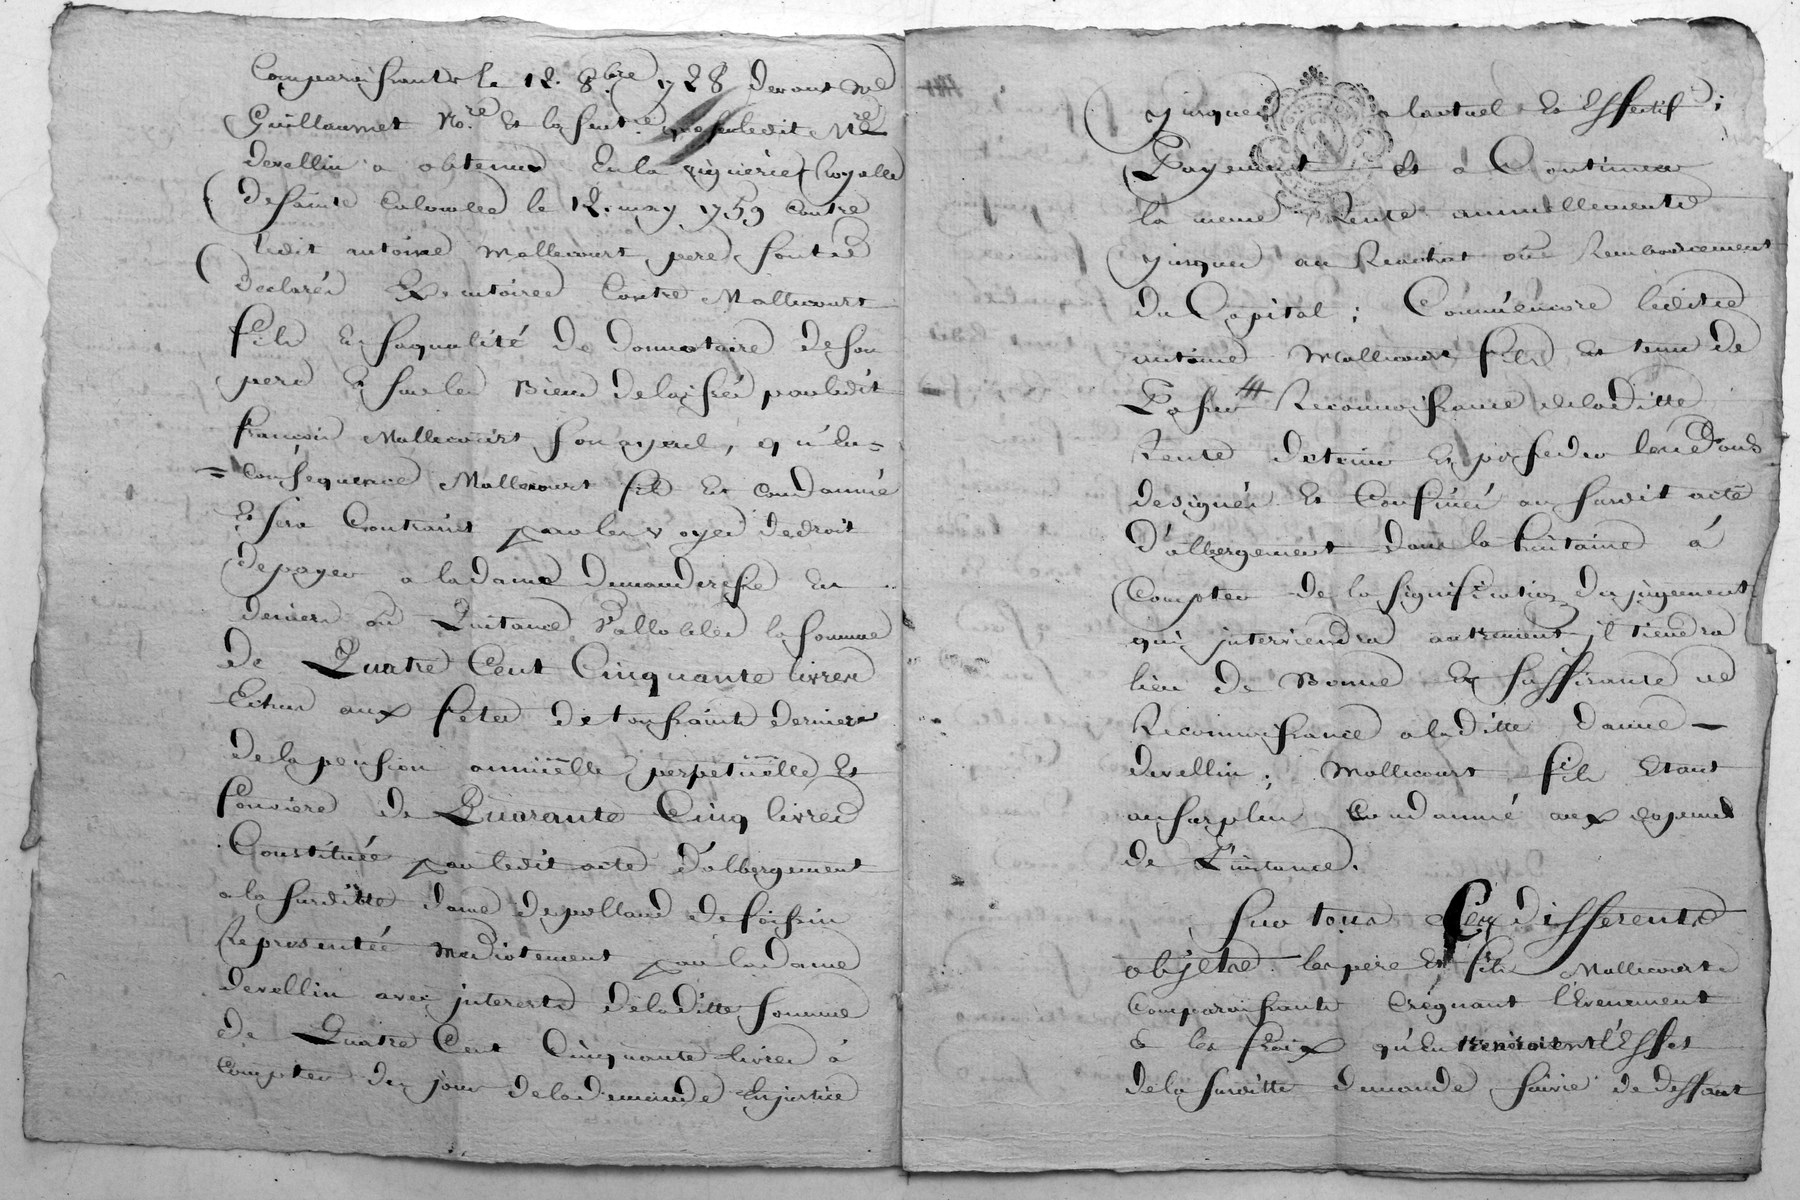 Comparoissants le 12. 8.bre 1728 devant Me
Guillaumet No.re Et la sent.ce que ledit Mre
devellin a obtenue En la viguerie Royalle
de sainte Colombe le 12. may 1759 contre
ledit antoine Mallecourt pere sont
declarés Exécutoires Contre Mallecourt
fils En saqualité de donnataire de son
pere Et sur les Biens delaissés par ledit
françois Mallecourt son ayeul, qu'En=
=conséquence Mallecourt fils Est condanné
Et sera Contraint par les voyes de droit
de payer a la dame demanderesse En
deniers ou Quitance Vallables la somme
de Quatre Cent Cinquante livres
Echus aux fetes de toussaints dernier
de la pension annüelle perpetüelle Et
fonciere de Quarante Cinq livres
Constituée par ledit acte d'albergement
a la susditte dame de pollard de foissin
Representée Mediatement par la dame
devellin avec interests de la ditte somme
de Quatre Cent Cinquante livres à
Compter du jour de la demande En justice
jusques a l'actuel Et Effectif
Payement Et a Continuer
la meme Rente annuellement
jusques au Rachat ou Remboursement
du Capital ; Comm'encore ledit
antoine Mallecourt fils Est tenu de
Passer Reconnoissance de la Ditte
Rente detenir Et posseder les fonds
designés Et Confinés au susdit acte
d'albergement dans la huitaine à
Compter de la signification du jugement
qui interviendra autrement il tiendra
lieu de Bonne Et suffisante
Reconnoissance a la ditte dame
devellin ; Mallecourt fils Etant
au surplus Condanné aux dépens
de L'instance.
Sur tous Ces differents
objets les pere Et fils Mallecourt
Comparoissants Creignant l'Evenement
& les fraix qu'En l'Effet
de la susditte demande suivie de deffaut